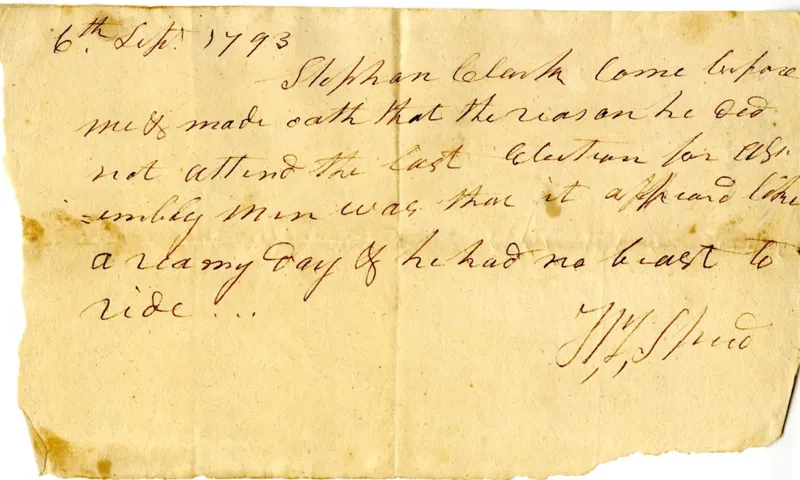 6th. Sept. 1793
Stephan Clark Come before
me & made oath that the reason he did
not attend the last Election for ass
=embly men was that it appeard like
a reamy day & he had no beast to
ride...
Speed